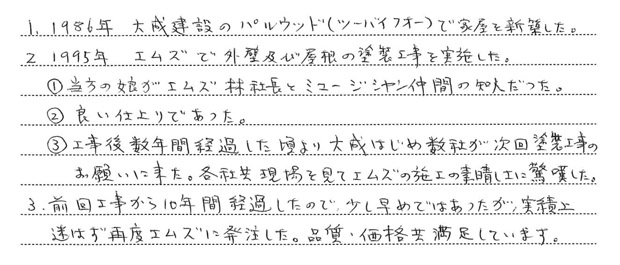 1. 1986年 大成建設のパルウッド(ツーバイフオー)で家屋を新築した。
2 1995年 エムズで外壁及び屋根の塗装工事を実施した。
①当方の娘がエムズ林社長とミュージシャン仲間の知人だった。
②良い仕上りであった。
③工事後数年間経過した頃より大成はじめ数社が次回塗装工事の
お願いに来た。各社共現場を見てエムズの施工の素晴しさに驚嘆した。
3.前回工事から10年間経過したので、少し早めではあったが、実績上
迷はず再度エムズに発注した。品質・価格共満足しています。